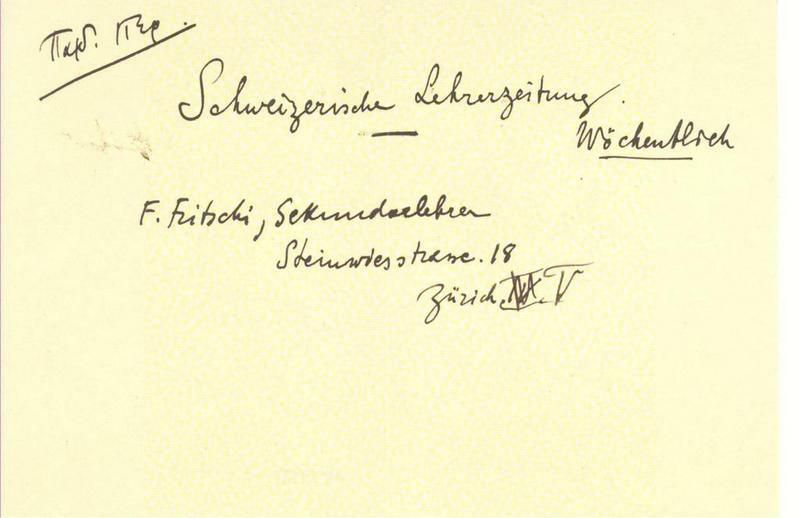 Παιδ. Περ.
Schweizerische Lehrerzeitung.
Wöchentlich
F. Fritschi, Sekundarlehrer
Steinwiesstrasse. 18
Zürich. V